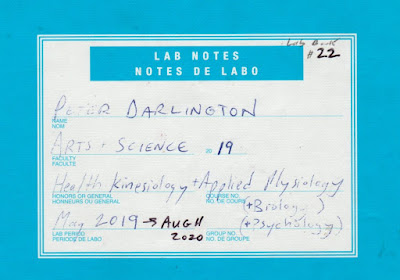 Lab Book
# 22
LAB NOTES
NOTES DE LABO
PETER DARLINGTON
NAME
NOM
ARTS + SCIENCE 20 19
FACULTY
FACULTÉ
Health Kinesiology + Applied Physiology
HONORS OR GENERAL COURSE NO.
HONNEURS OU GÉNÉRAL NO. DE COURS
(+Biology)
May 2019 → AUG 11 (+Psychology)
2020
LAB PERIOD GROUP NO.
PÉRIODE DE LABO NO. DE GROUPE